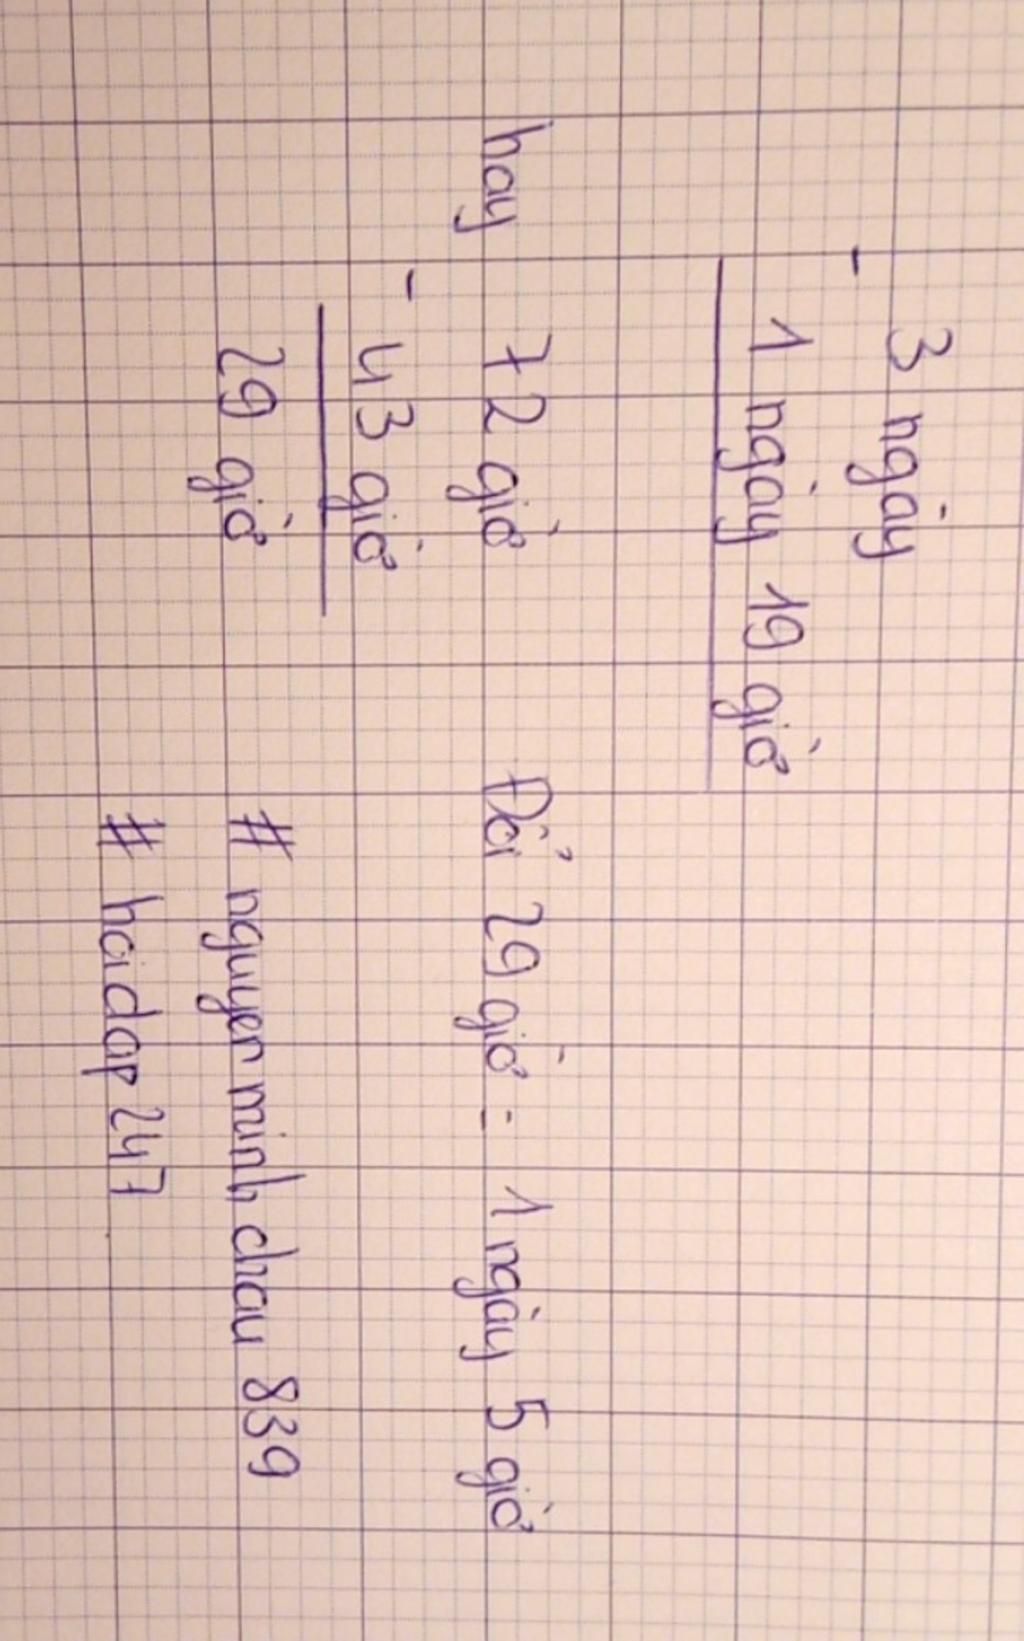 3 ngày
-
1 ngày 19 giờ
hay 72 giờ
-
43 giờ
29 giờ
Đổi 29 giờ = 1 ngày 5 giờ
# nguyenminhchau 839
# hoidap247